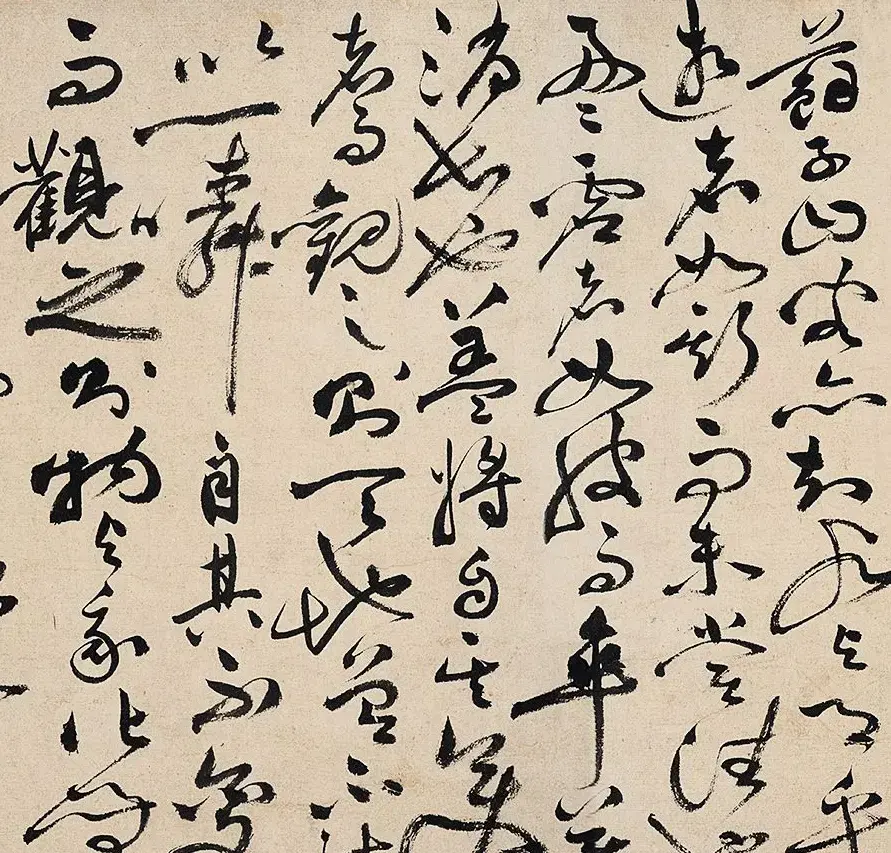 蘇子曰客亦知水與月乎
逝者如斯而未嘗往
盈虛者如彼而卒莫
消長也蓋將自其變
者而觀之則天地曾不
以一瞬自其不變
而觀之則物與我皆